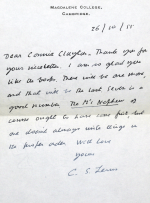 MAGDALENE COLLEGE,
CAMBRIDGE.
26/10/55
Dear Connie Claghorn, Thank you for
your nice letter. I am so glad you
like the books. There will be one more,
and that will be the last. Seven is a
good number. The M's Nephew of
course ought to have come first, but
one doesn't always write things in
the proper order. With love
yours
C. S. Lewis